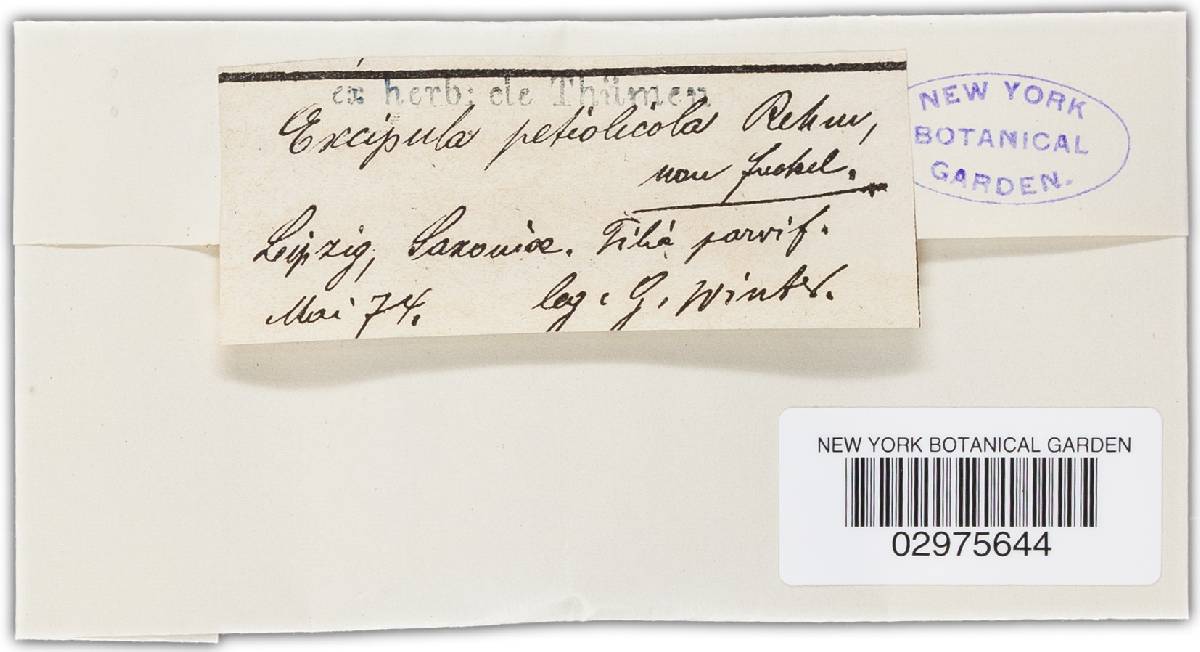 ex herb: de Thümen
Excipula petiolicola Rehm,
non Fuckel.
Leipzig, Saxoniae. Tilia parvif.
Mai 74. leg. G. Winter.
NEW YORK
BOTANICAL
GARDEN.
NEW YORK BOTANICAL GARDEN
02975644